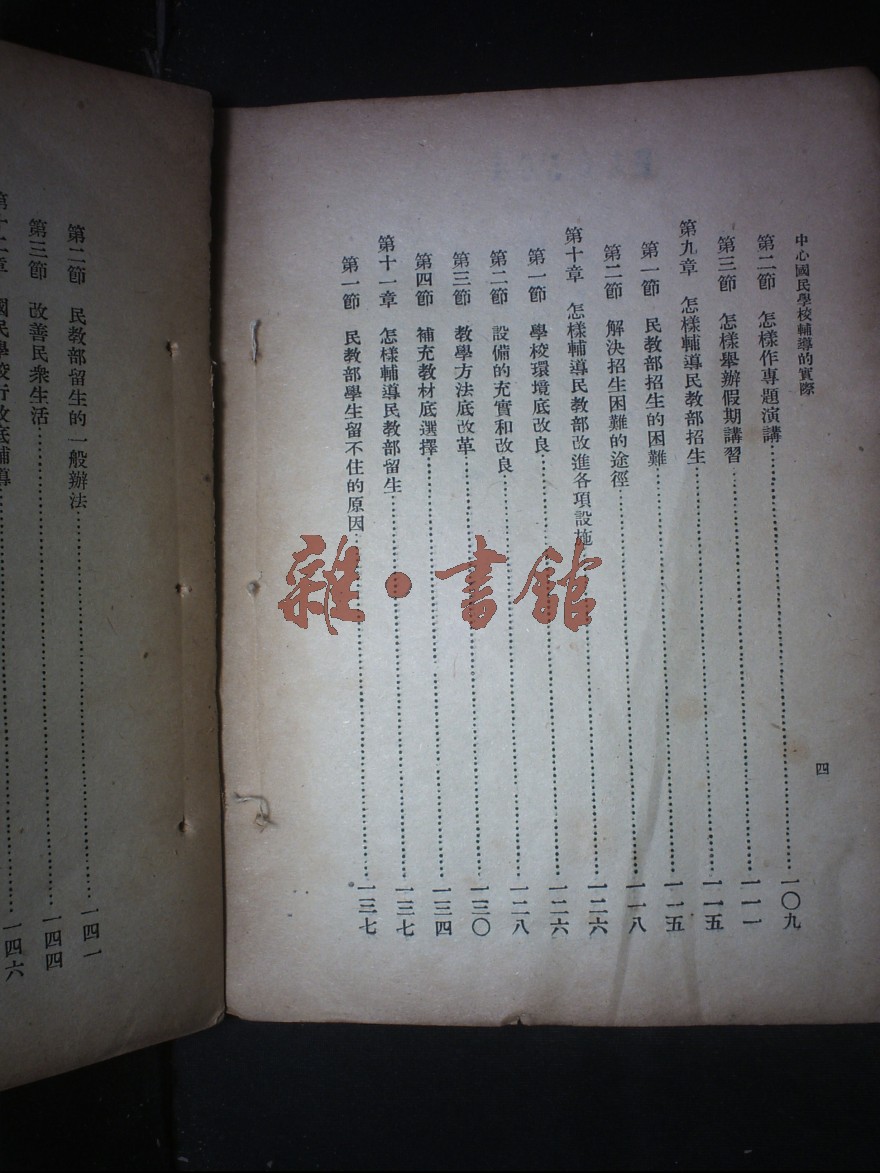 中心國民學校輔導的實際
四
第二節 怎樣作專題演講……一〇九
第三節 怎樣舉辦假期講習……一一一
第九章 怎樣輔導民教部招生……一一五
第一節 民教部招生的困難……一一五
第二節 解決招生困難的途徑……一一八
第十章 怎樣輔導民教部改進各項設施……一二六
第一節 學校環境底改良……一二六
第二節 設備的充實和改良……一二八
第三節 教學方法底改革……一三〇
第四節 補充教材底選擇……一三四
第十一章 怎樣輔導民教部留生……一三七
第一節 民教部學生留不住的原因……一三七
第二節 民教部留生的一般辦法……一四一
第三節 改善民衆生活……一四四
第十二章 國民學校行政底輔導……一四六
雜·書館